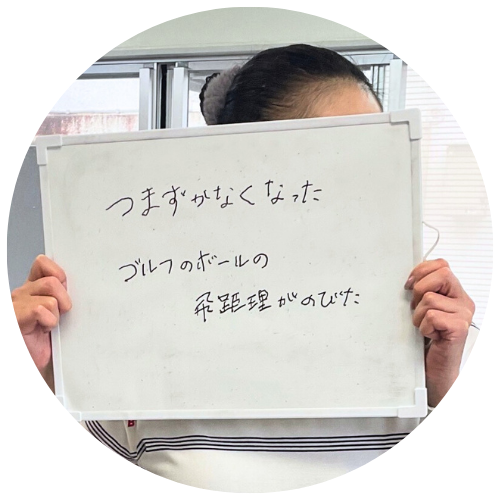 つまずかなくなった
ゴルフのボールの
飛距理がのびた